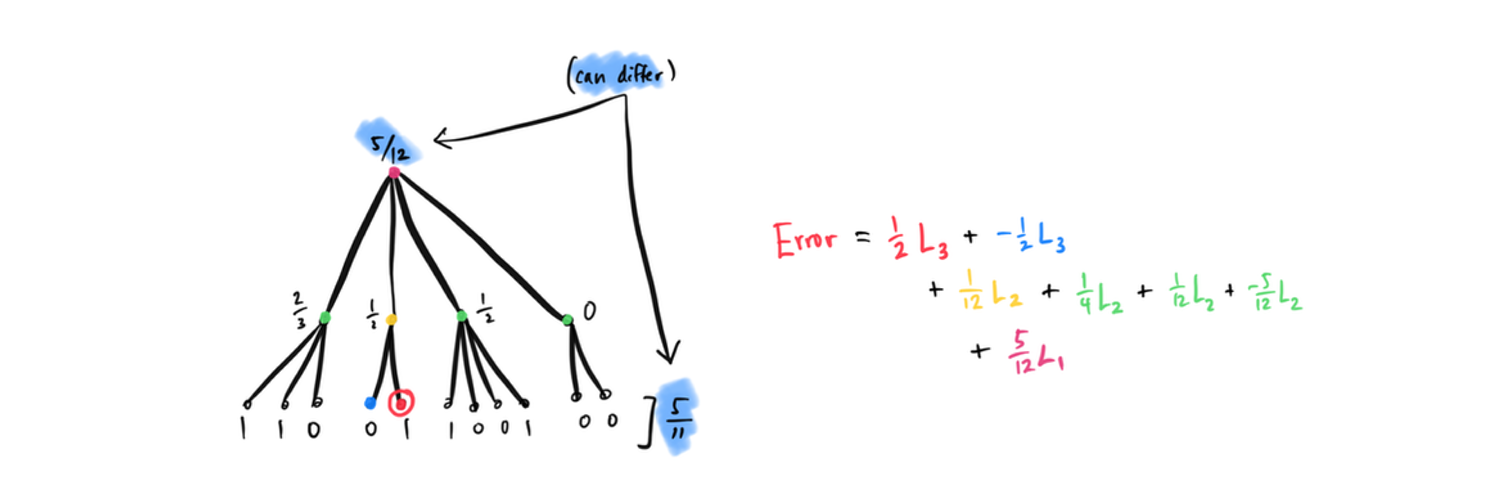 (can differ)
5/12
2/3 1/2 1/2 0
1 1 0 0 1 1 0 0 1 0 0 ] 5/11
Error = 1/2 L₃ + -1/2 L₃
+ 1/12 L₂ + 1/4 L₂ + 1/12 L₂ + -5/12 L₂
+ 5/12 L₁